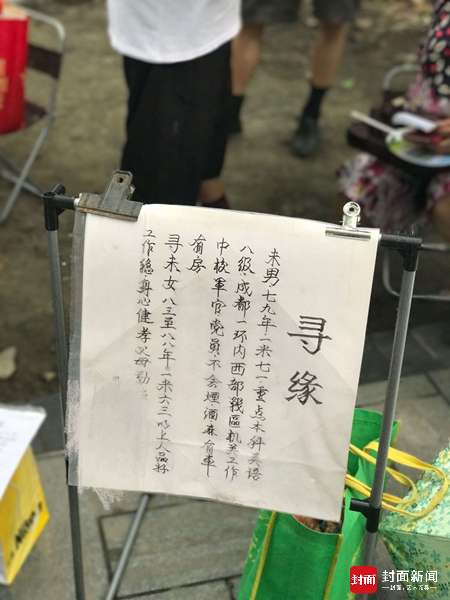 寻缘
未男、七九年一米七一、重点本科英语
八级、成都一环内西部战區机关工作
中校軍官党员、不会煙、酒、麻、有车
有房
寻未女八三至八八年一米六三以上人品好
工作穩尃心健孝父母勤
封面 封面新闻
封面，亿心有你